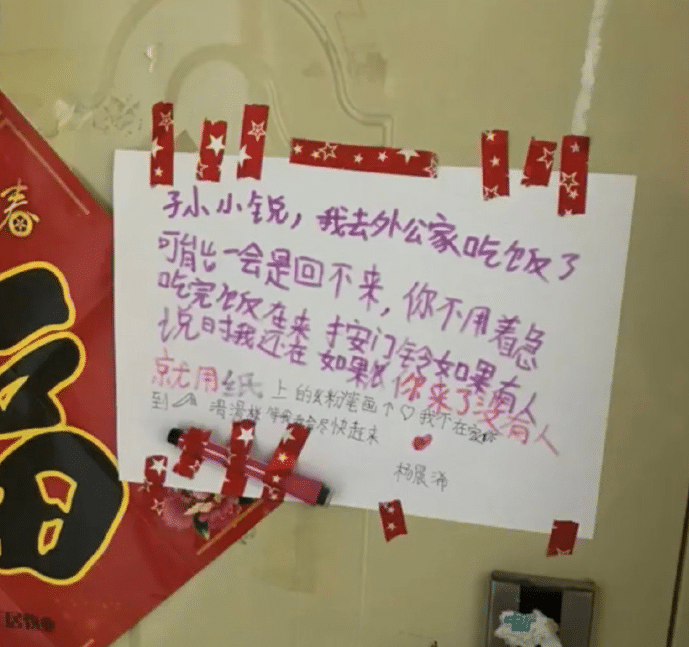 春
福
孙小小锐，我去外公家吃饭了
可能一会是回不来，你不用着急
吃完饭在来 按门铃如果有人
说明我还在 如果 你来了没有人
就用纸上的 粉笔画个♡我不在家
到 滑滑梯 会尽快赶来
杨晨浠